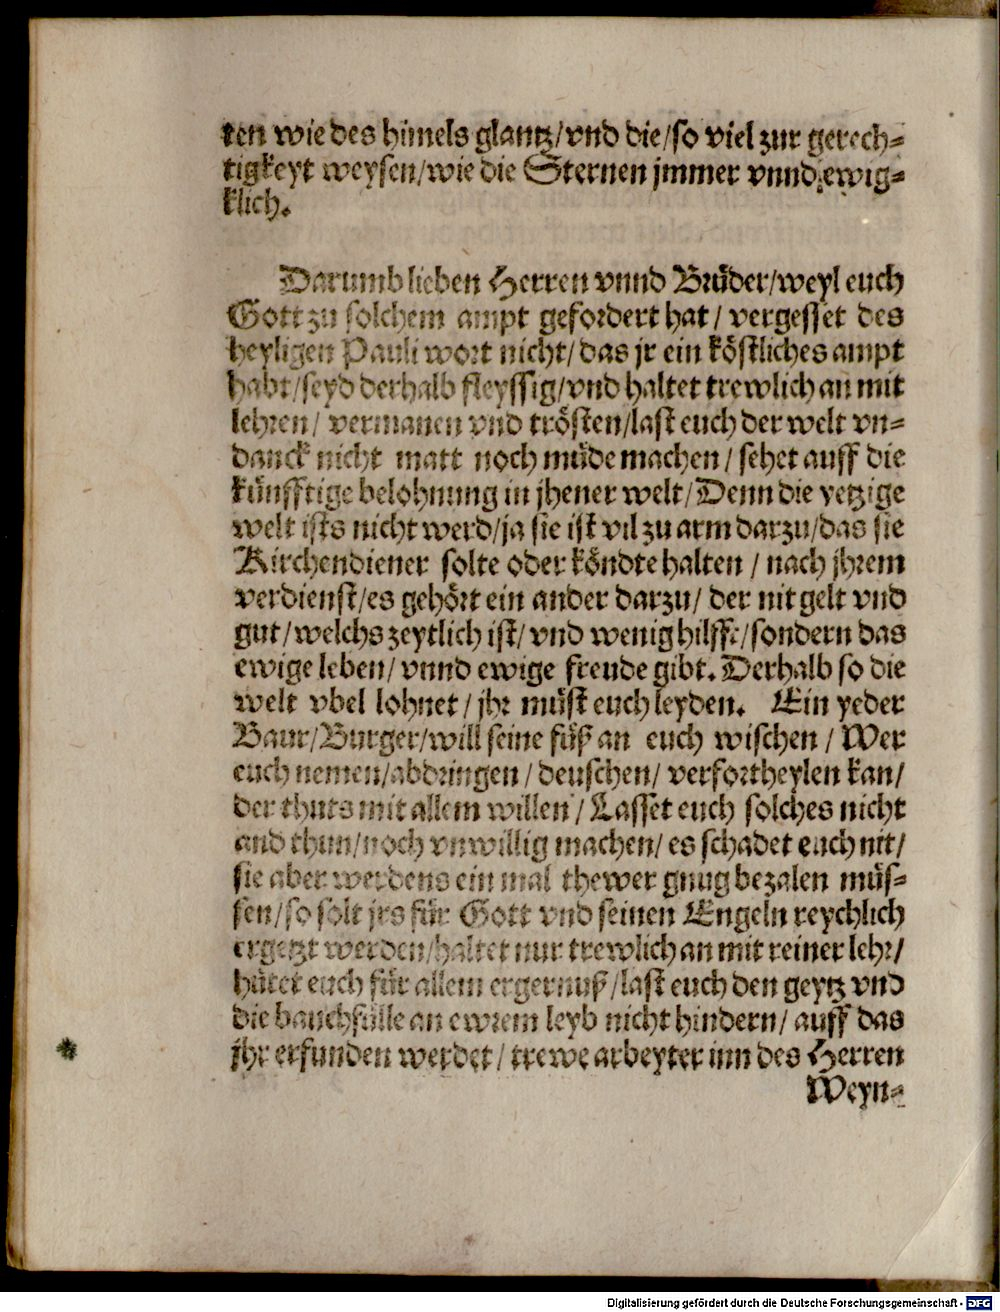 ten wie des himels glantz/vnd die/so viel zur gerech-
tigkeyt weysen/wie die Sternen jmmer vnnd ewig-
klich.
Darumb lieben Herren vnnd Brüder/weyl euch
Gott zu solchem ampt gefordert hat/ vergesset des
heyligen Pauli wort nicht/ das jr ein köstliches ampt
habt/seyd derhalb fleyssig/vnd haltet trewlich an mit
lehren/ vermanen vnd trösten/last euch der welt vn-
danck nicht matt noch müde machen/ sehet auff die
künfftige belohnung in jhener welt/Denn die yetzige
welt ists nicht werd/ja sie ist vil zu arm darzu/das sie
Kirchendiener solte oder köndte halten / nach jhrem
verdienst/es gehört ein ander darzu/ der nit gelt vnd
gut/welchs zeytlich ist/ vnd wenig hilfft/sondern das
ewige leben/ vnnd ewige freude gibt. Derhalb so die
welt vbel lohnet/ jhr müst euch leyden. Ein yeder
Baur/Burger/will seine füß an euch wischen / Wer
euch nemen/abdringen / deuschen/ verfortheylen kan/
der thuts mit allem willen / Lasset euch solches nicht
and thun/noch vnwillig machen/ es schadet euch nit/
sie aber werdens ein mal thewer gnug bezalen müs-
sen/so solt jrs für Gott vnd seinen Engeln reychlich
ergetzt werden/haltet nur trewlich an mit reiner lehr/
hütet euch für allem ergernuß/last euch den geytz vnd
die bauchfülle an ewrem leyb nicht hindern/ auff das
jhr erfunden werdet/ trewe arbeyter inn des Herren
Weyn-
Digitalisierung gefördert durch die Deutsche Forschungsgemeinschaft - DFG